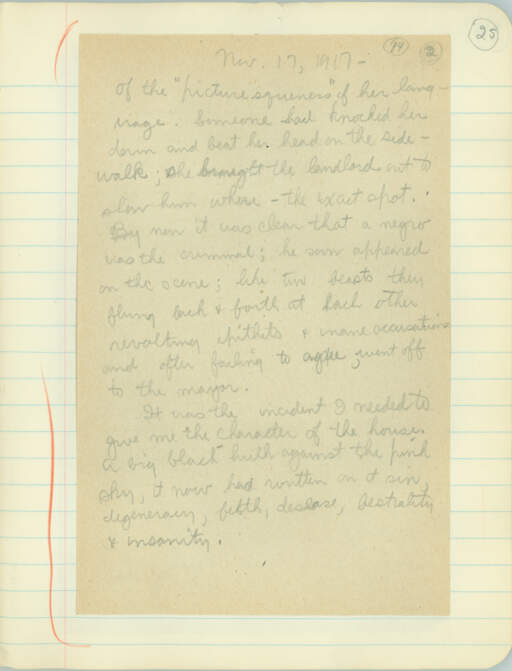 25
94
2
Nov. 17, 1917 -
of the "picturesqueness" of her lang-
uage". Someone had knocked her
down and beat her head on the side-
walk; she brought the landlord out to
show him where - the exact spot.
By now it was clear that a negro
was the criminal; he soon appeared
on the scene; like two beasts they
flung back & forth at each other
revolting epithets & inane accusations
and after failing to agree, went off
to the mayor.
It was the incident I needed to
give me the character of the house.
A big black hulk against the pink
sky, it now had written on it sin,
degeneracy, filth, disease, bestiality
& insanity.